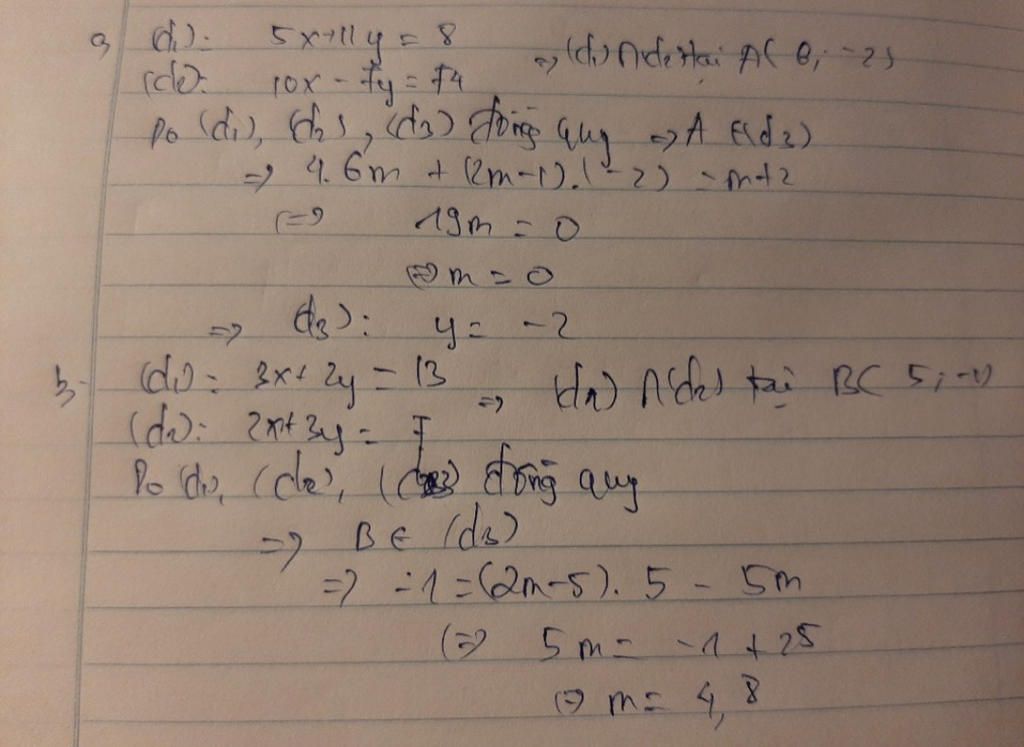 a, (d₁): 5x+11y = 8
(d₂): 10x - 7y = 74
⇒ (d₁) ∩ d₂ tại A( 6; -2)
Do (d₁), (d₂), (d₃) đồng quy ⇒ A ∈ (d₃)
⇒ 4.6m + (2m-1).(-2) = m+2
⇔ 19m = 0
⇔ m = 0
⇒ (d₃): y = -2
b, (d₁): 3x + 2y = 13 ⇒ (d₁) ∩ (d₂) tại B( 5; -1)
(d₂): 2x+3y = 7
Do (d₁), (d₂), (d₃) đồng quy
⇒ B ∈ (d₃)
⇒ -1 = (2m-5). 5 - 5m
⇔ 5m = -1 + 25
⇔ m = 4,8